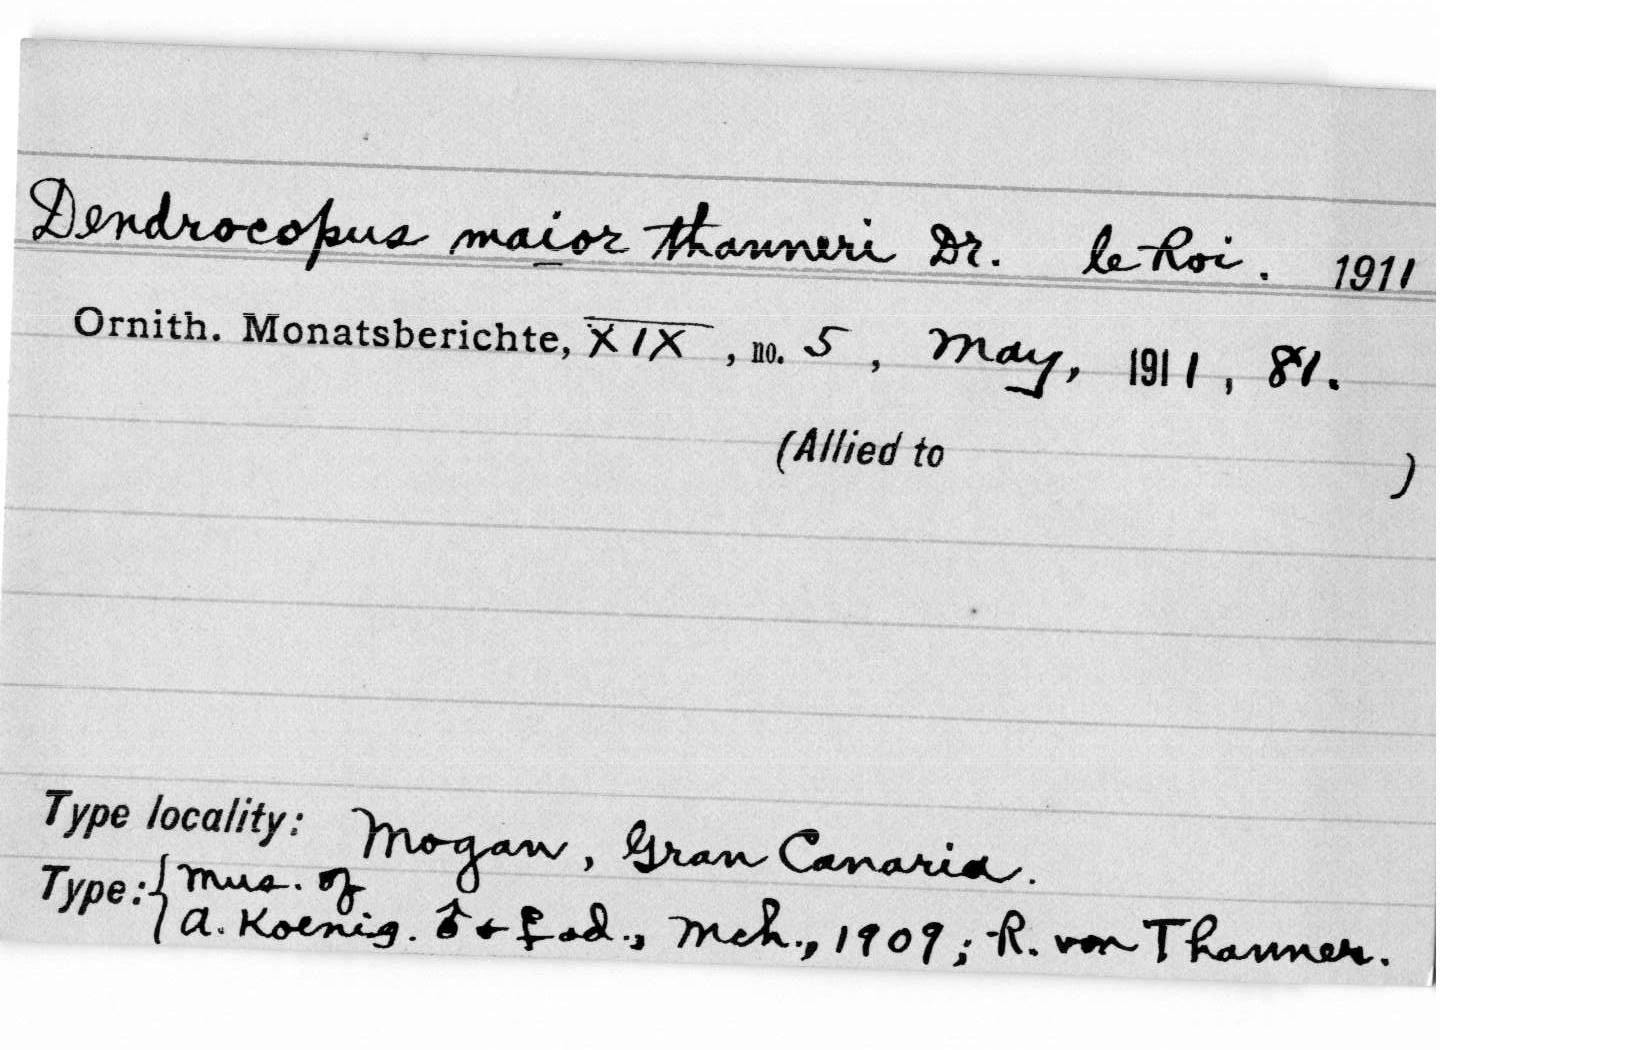 Dendrocopus maior thanneri Dr. le Roi. 1911
Ornith. Monatsberichte, XIX, no. 5, May, 1911, 81.
(Allied to )
Type locality: Mogan, Gran Canaria.
Type: { Mus. of
A. Koenig. ♂ + ♀ ad., Mch., 1909; R. von Thanner.